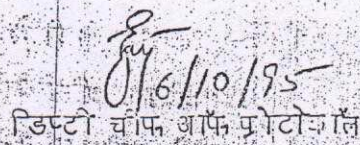 6/10/95
डिप्टी चीफ ऑफ प्रोटोकॉल